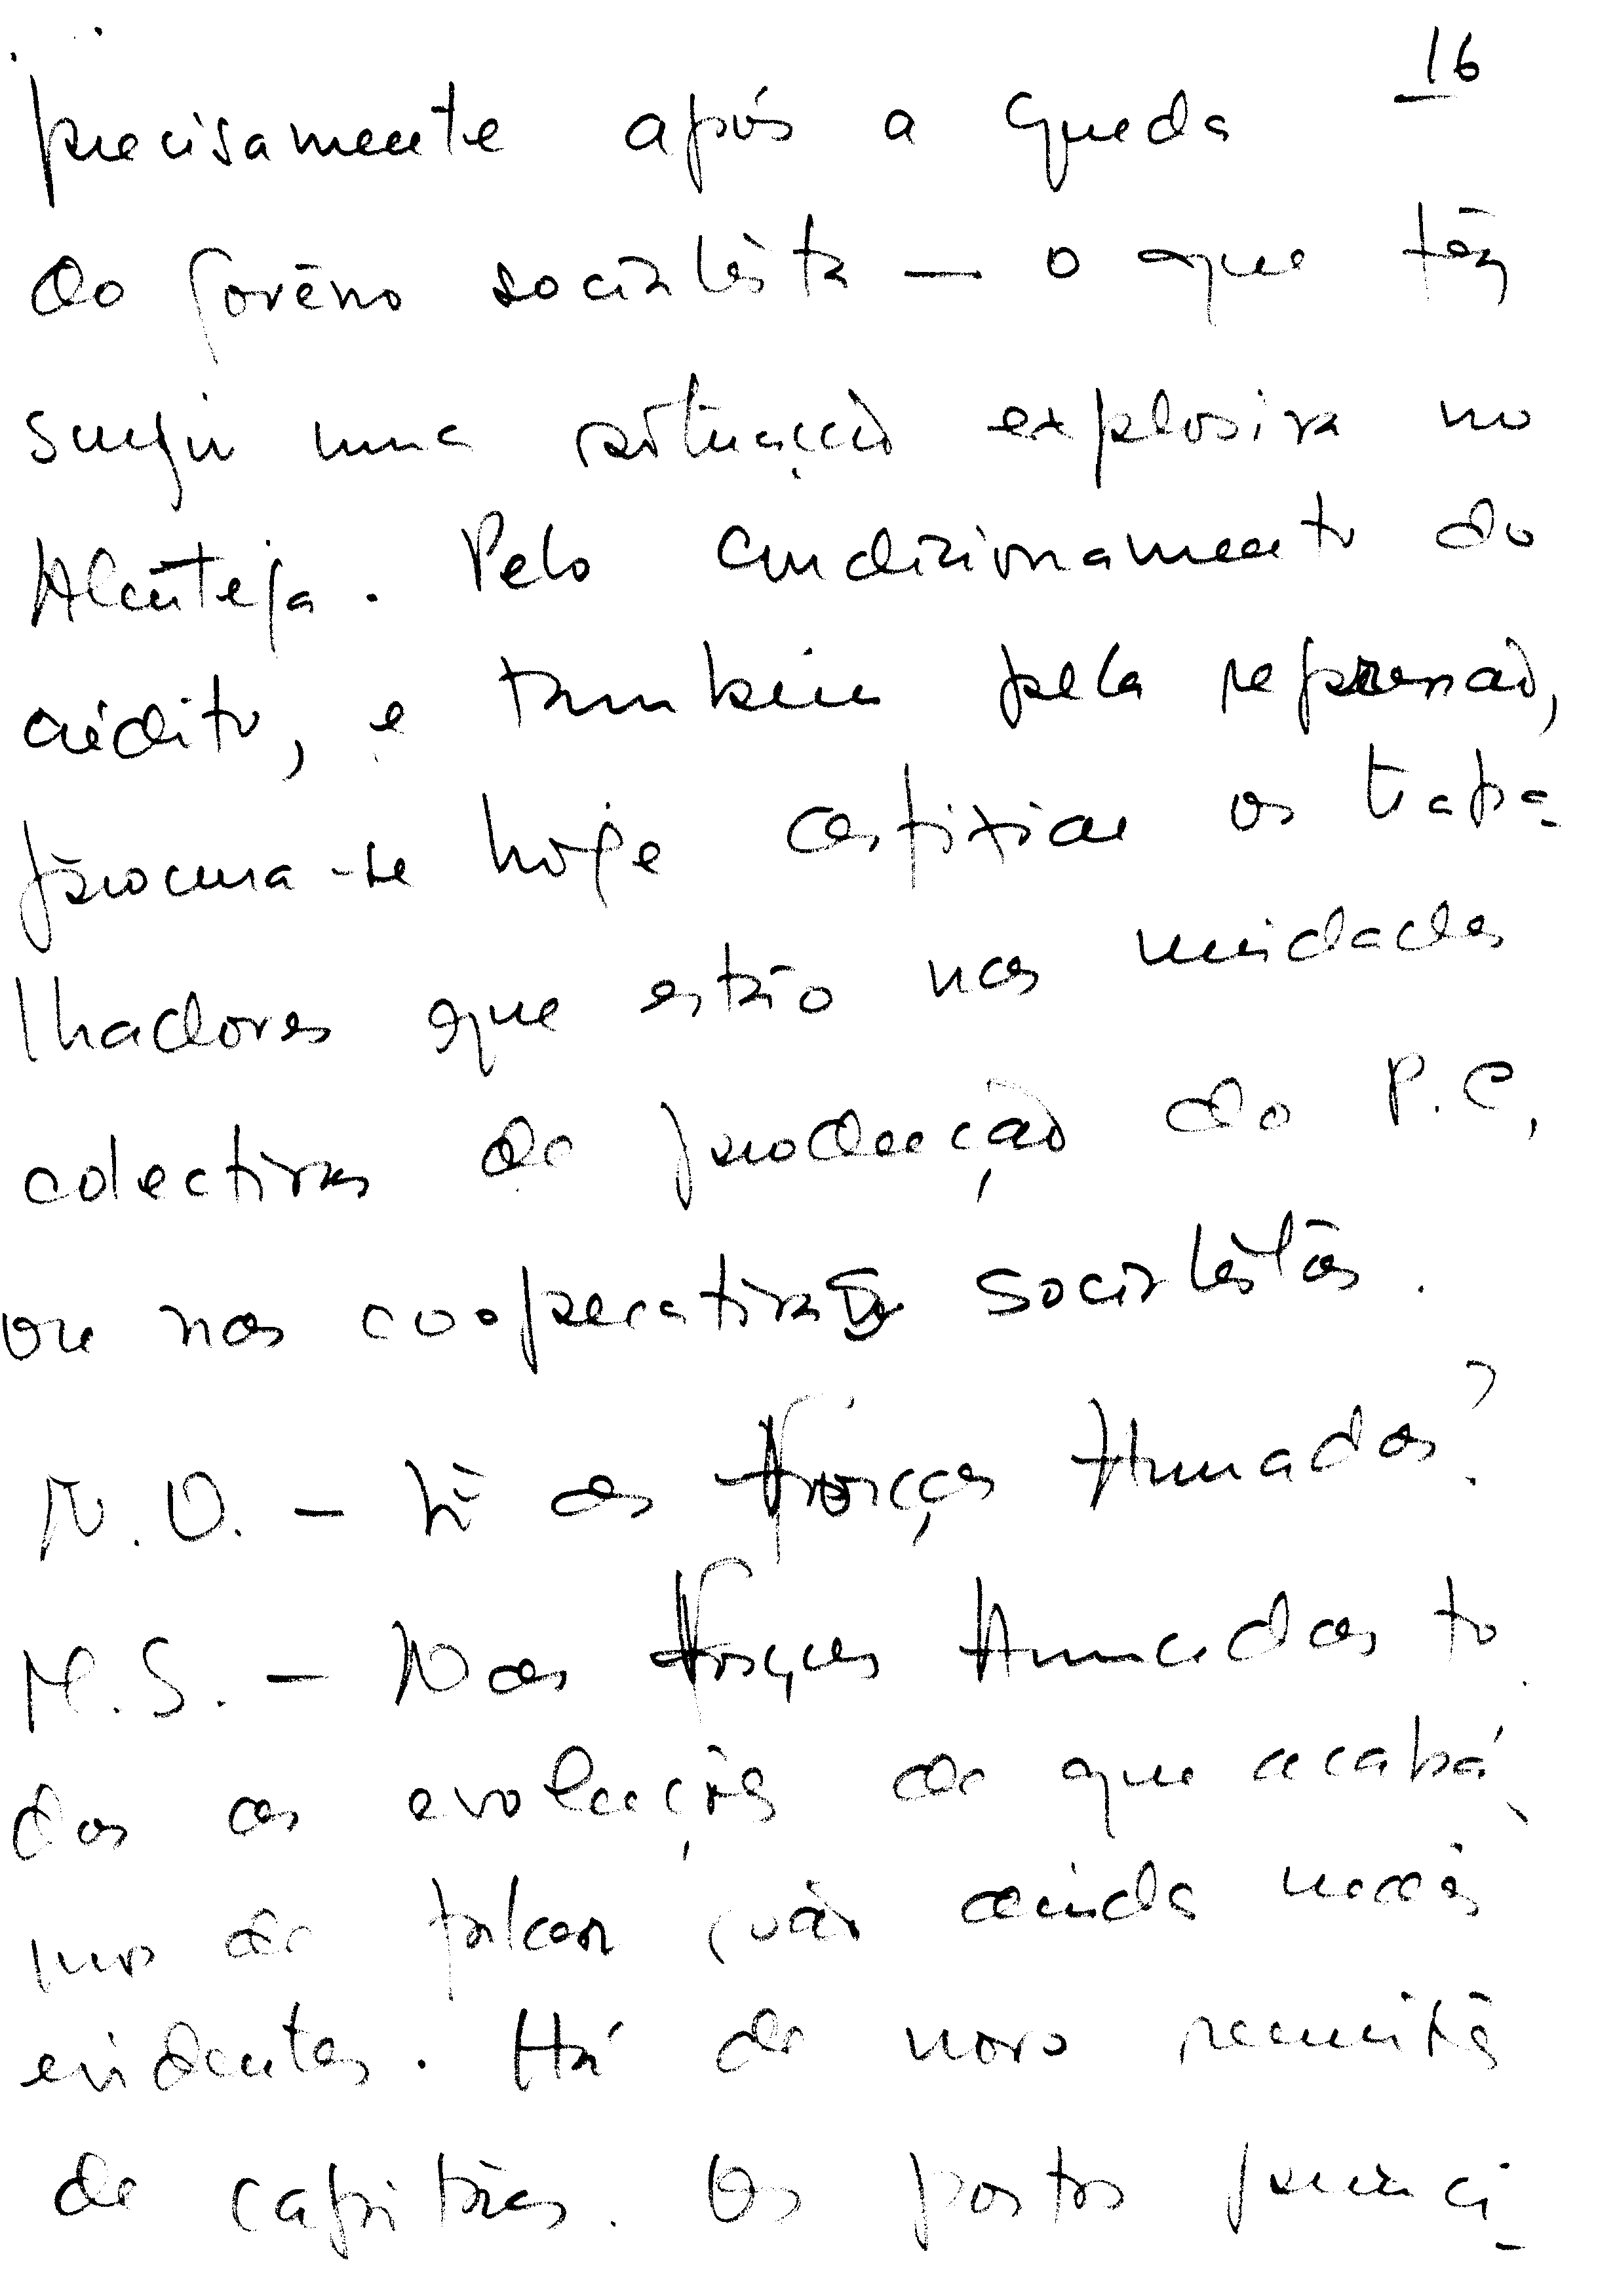 16
precisamente após a queda
do govêrno socialista — o que fêz
surgir uma situação explosiva no
Alentejo. Pelo condicionamento do
crédito, e também pela repressão,
procura-se hoje asfixiar os traba-
lhadores que estão nas unidades
colectivas de produção do P.C,
ou nas cooperativas socialistas.
N.O. — E as Forças Armadas?
M.S. — Nas Forças Armadas to-
das as evoluções de que acabá-
mos de falar são ainda mais
evidentes. Há de novo reuniões
de capitães. Os postos princi-